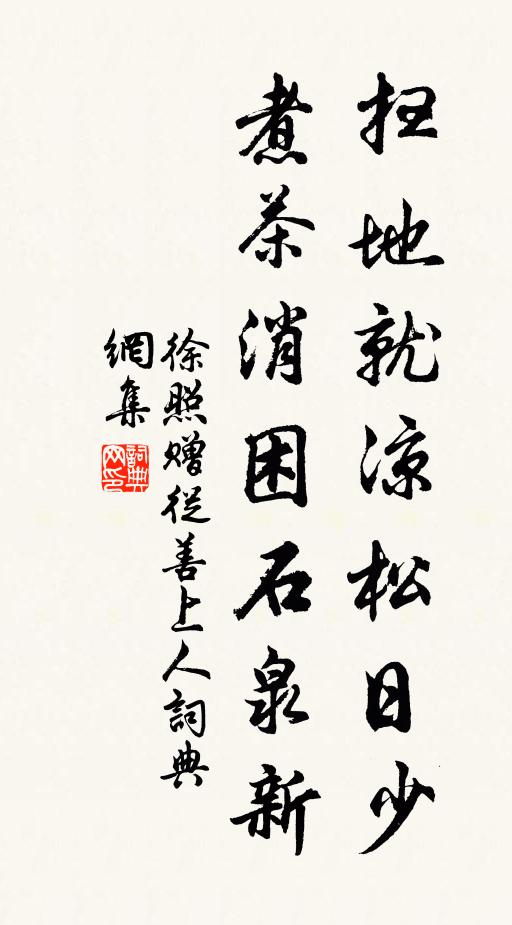 扫地就凉松日少
煮茶消困石泉新
徐照赠從善上人詞典
網集
詞典
网印